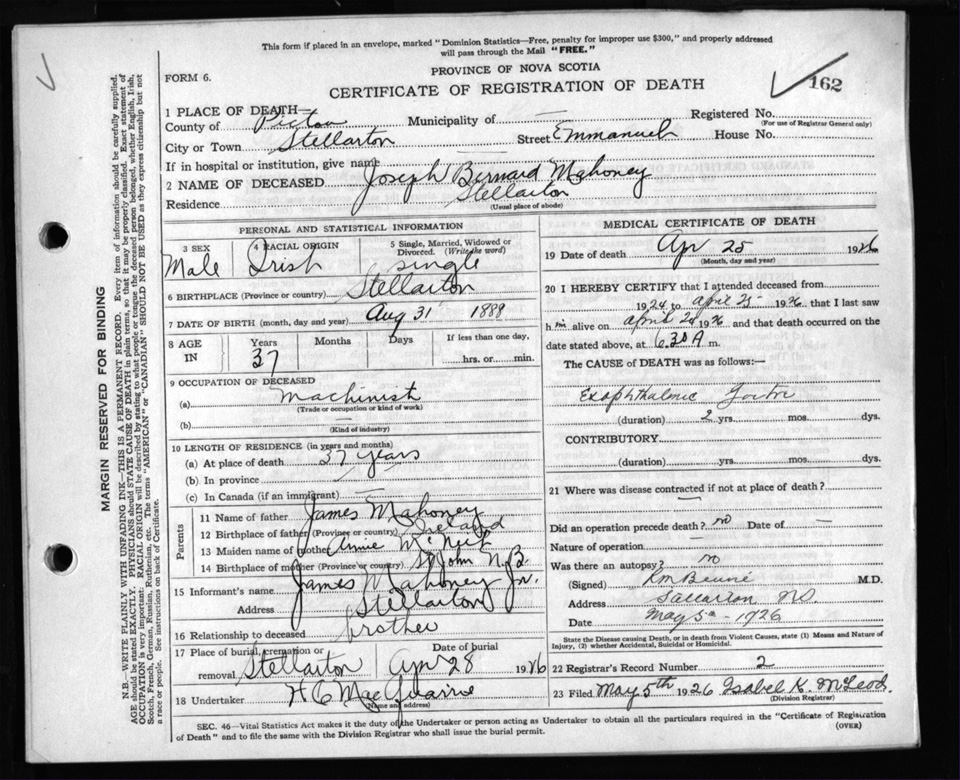 This form if placed in an envelope, marked "Dominion Statistics—Free, penalty for improper use $300," and properly addressed
will pass through the Mail "FREE."
PROVINCE OF NOVA SCOTIA
FORM 6.
CERTIFICATE OF REGISTRATION OF DEATH
162
1 PLACE OF DEATH—
County of Pictou Municipality of — Registered No.
(For use of Registrar General only)
City or Town Stellarton Street Emmanuel House No.
If in hospital or institution, give name —
2 NAME OF DECEASED Joseph Bernard Mahoney
Residence Stellarton
(Usual place of abode)
PERSONAL AND STATISTICAL INFORMATION
3 SEX 4 RACIAL ORIGIN 5 Single, Married, Widowed or Divorced. (Write the word)
Male Irish single
6 BIRTHPLACE (Province or country) Stellarton
7 DATE OF BIRTH (month, day and year) Aug 31 1888
8 AGE IN Years Months Days If less than one day,
37 hrs. or min.
9 OCCUPATION OF DECEASED
(a) Machinist
(Trade or occupation or kind of work)
(b) —
(Kind of industry)
10 LENGTH OF RESIDENCE (in years and months)
(a) At place of death 37 years
(b) In province —
(c) In Canada (if an immigrant) —
Parents
11 Name of father James Mahoney
12 Birthplace of father (Province or country) Ireland
13 Maiden name of mother Annie
14 Birthplace of mother (Province or country) St John N.B.
15 Informant's name James Mahoney Jr.
Address Stellarton
16 Relationship to deceased brother
17 Place of burial, cremation or removal Date of burial
Stellarton Apr 28 1926
18 Undertaker H C MacQuarrie
(Name and address)
MEDICAL CERTIFICATE OF DEATH
19 Date of death Apr 25 1926
(Month, day and year)
20 I HEREBY CERTIFY that I attended deceased from
1924 to April 25 1926, that I last saw
him alive on April 1926, and that death occurred on the
date stated above, at 6.30 A m.
The CAUSE of DEATH was as follows:—
Exophthalmic Goitre
(duration) 2 yrs. mos. dys.
CONTRIBUTORY
(duration) yrs. mos. dys.
21 Where was disease contracted if not at place of death?
—
Did an operation precede death? no Date of —
Nature of operation —
Was there an autopsy? no
(Signed) M.D.
Address Stellarton NS.
Date May 5th - 1926
State the Disease causing Death, or in death from Violent Causes, state (1) Means and Nature of
Injury, (2) whether Accidental, Suicidal or Homicidal.
22 Registrar's Record Number 2
23 Filed May 5th 1926 Isabel K. McLeod.
(Division Registrar)
SEC. 46—Vital Statistics Act makes it the duty of the Undertaker or person acting as Undertaker to obtain all the particulars required in the "Certificate of Registration
of Death" and to file the same with the Division Registrar who shall issue the burial permit.
(OVER)
MARGIN RESERVED FOR BINDING
N.B.—WRITE PLAINLY WITH UNFADING INK—THIS IS A PERMANENT RECORD. Every item of information should be carefully supplied.
AGE should be stated EXACTLY. PHYSICIANS should STATE CAUSE OF DEATH in plain terms, so that it may be properly classified. Exact statement of
OCCUPATION is very important. RACIAL ORIGIN will be described by stating to what people or tongue the deceased person belonged, whether English, Irish,
Scotch, French, German, Russian, Ruthenian, etc. The terms "AMERICAN" or "CANADIAN" SHOULD NOT BE USED as they express citizenship but not
a race or people. See instructions on back of Certificate.